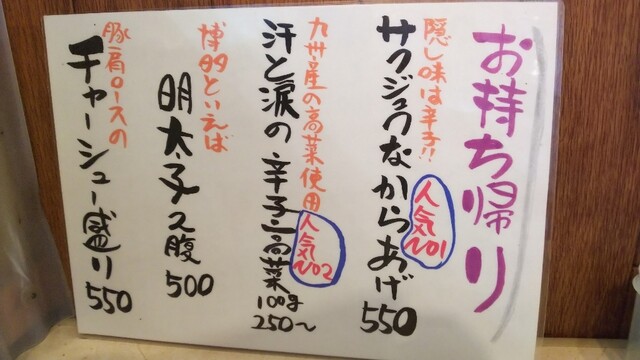 お持ち帰り
隠し味は辛子!!
サクジュワなからあげ
人気NO1
550
九州産の高菜使用
人気NO2
汗と涙の辛子高菜
100g
250〜
博多といえば
明太子2腹
500
豚肩ロースの
チャーシュー盛り
550